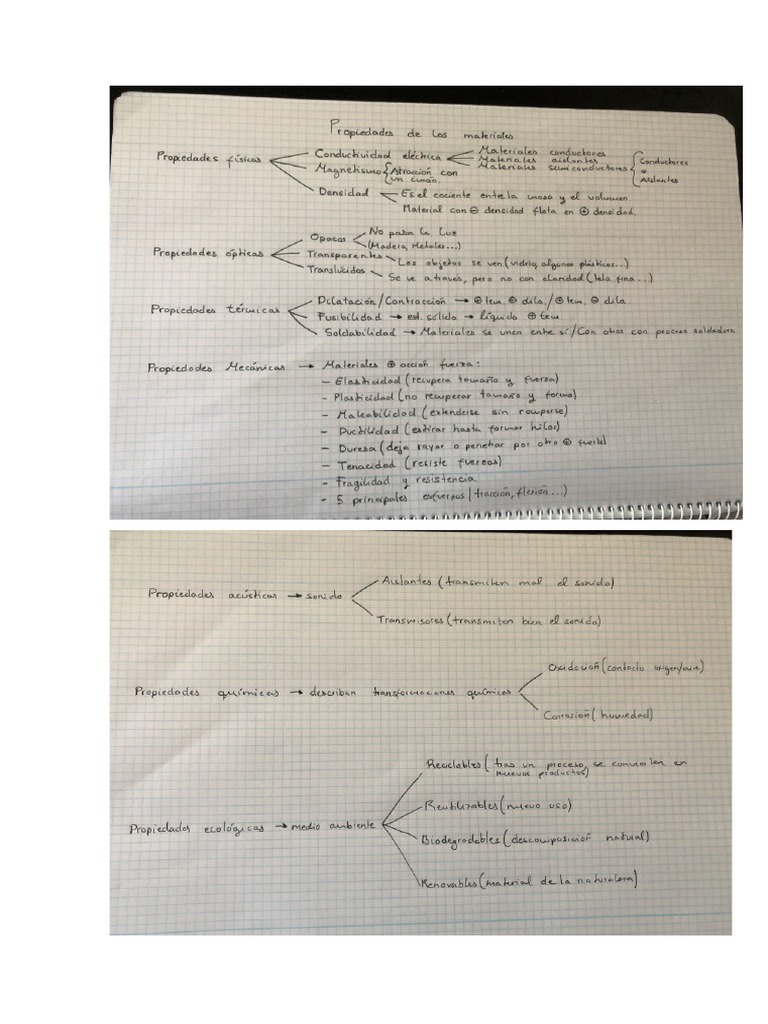 Propiedades de los materiales
Propiedades físicas
Conductividad eléctrica
Materiales conductores
Materiales aislantes
Materiales semiconductores
Conductores
o
Aislantes
Magnetismo
Atracción con
un imán.
Densidad
Es el cociente entre la masa y el volumen.
Material con ⊖ densidad flota en ⊕ densidad.
Propiedades ópticas
Opacos
No pasa la luz
(Madera, Metales...)
Transparentes
Los objetos se ven (vidrio, algunos plásticos...)
Translúcidos
Se ve a través, pero no con claridad (tela fina...)
Propiedades térmicas
Dilatación/Contracción → ⊕ tem. ⊕ dila. / ⊕ tem. ⊖ dila.
Fusibilidad → est. sólido → líquido ⊕ tem.
Soldabilidad → Materiales se unen entre sí/Con otros con proceso soldadura
Propiedades Mecánicas → Materiales ⊕ acción fuerza:
- Elasticidad (recupera tamaño y fuerza)
- Plasticidad (no recuperar tamaño y forma)
- Maleabilidad (extenderse sin romperse)
- Ductilidad (estirar hasta formar hilos)
- Dureza (deja rayar o penetrar por otro ⊕ fuerte)
- Tenacidad (resiste fuerzas)
- Fragilidad y resistencia
- 5 principales esfuerzos (tracción, flexión...)
Propiedades acústicas → sonido
Aislantes (transmiten mal el sonido)
Transmisores (transmiten bien el sonido)
Propiedades químicas → describen transformaciones químicas
Oxidación (contacto oxigen/aire)
Corrosión (humedad)
Propiedades ecológicas → medio ambiente
Reciclables (tras un proceso, se convierten en
nuevos productos)
Reutilizables (nuevo uso)
Biodegradables (descomposición natural)
Renovables (material de la naturaleza)